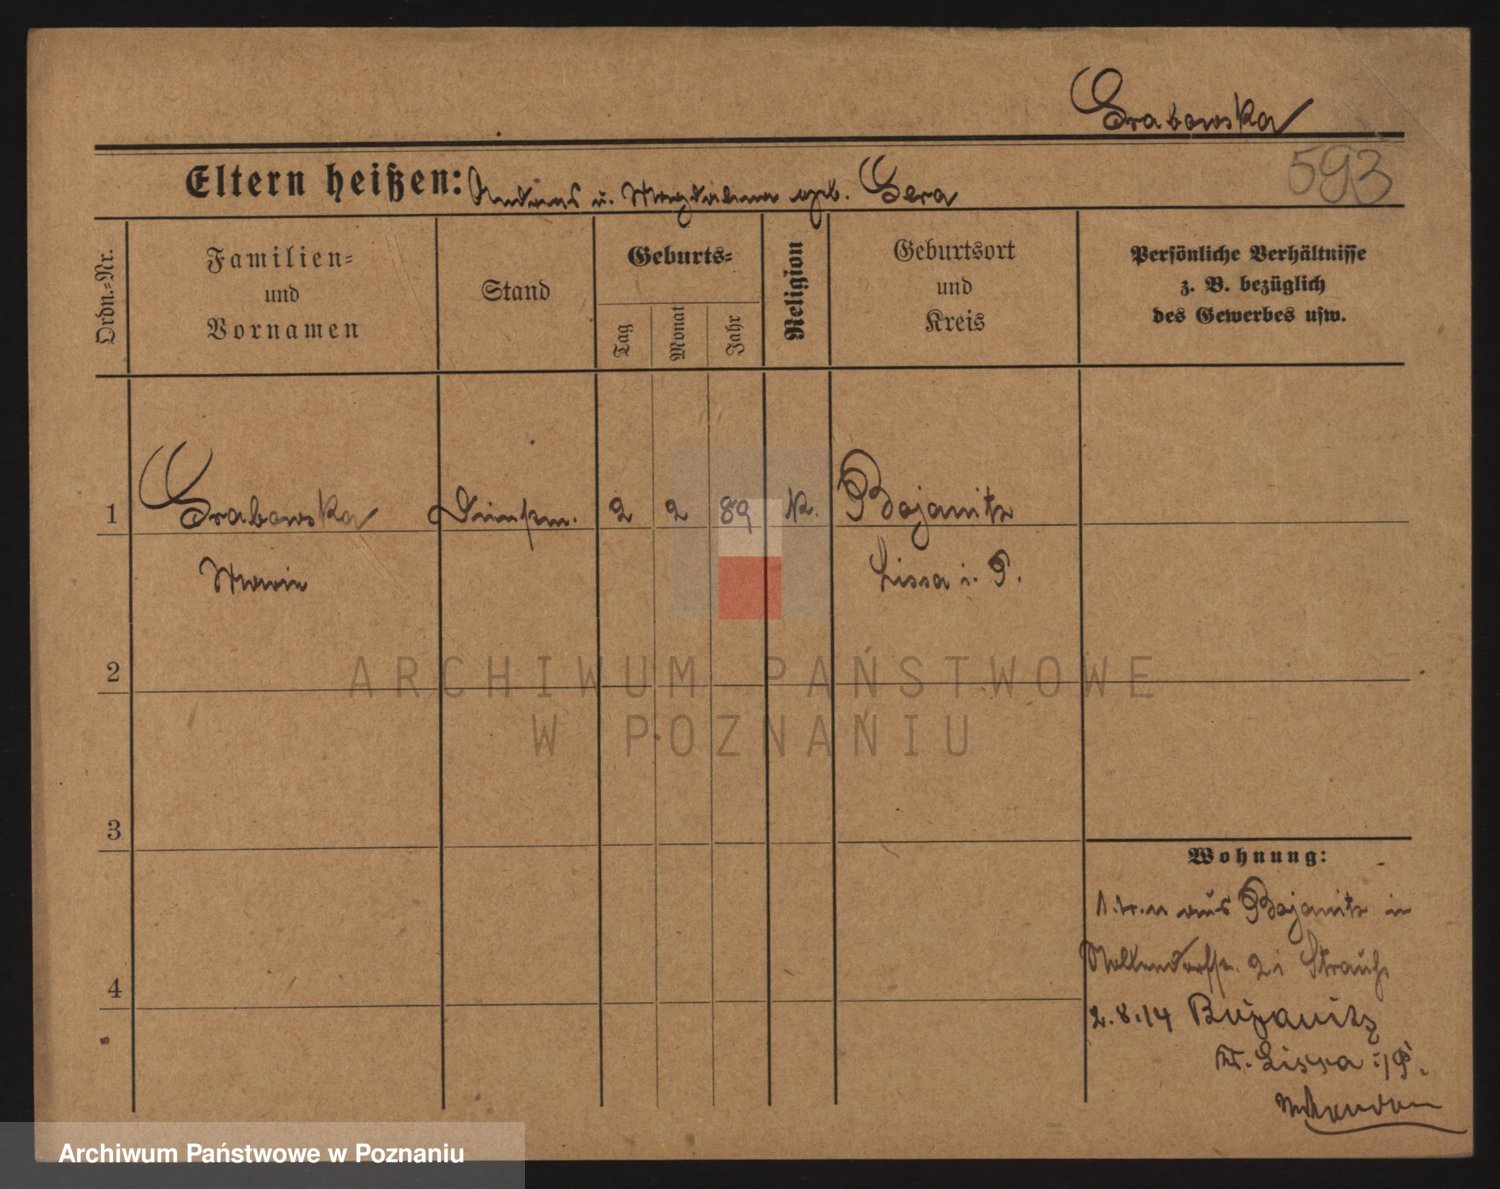 Grabowska
593
Eltern heißen: Andreas u. Magdalena geb. Gera
Ordn.-Nr.
Familien-
und
Vornamen
Stand
Geburts-
Tag
Monat
Jahr
Religion
Geburtsort
und
Kreis
Persönliche Verhältnisse
z. B. bezüglich
des Gewerbes usw.
1
Grabowska
Dienstm.
2
2
89
k.
Bojanitz
Marie
Lissa i. P.
2
ARCHIWUM PAŃSTWOWE
W POZNANIU
3
Wohnung:
aus Bojanitz in
Strauch
4
2.8.14 Bojanitz
Kr. Lissa i/P.
Archiwum Państwowe w Poznaniu